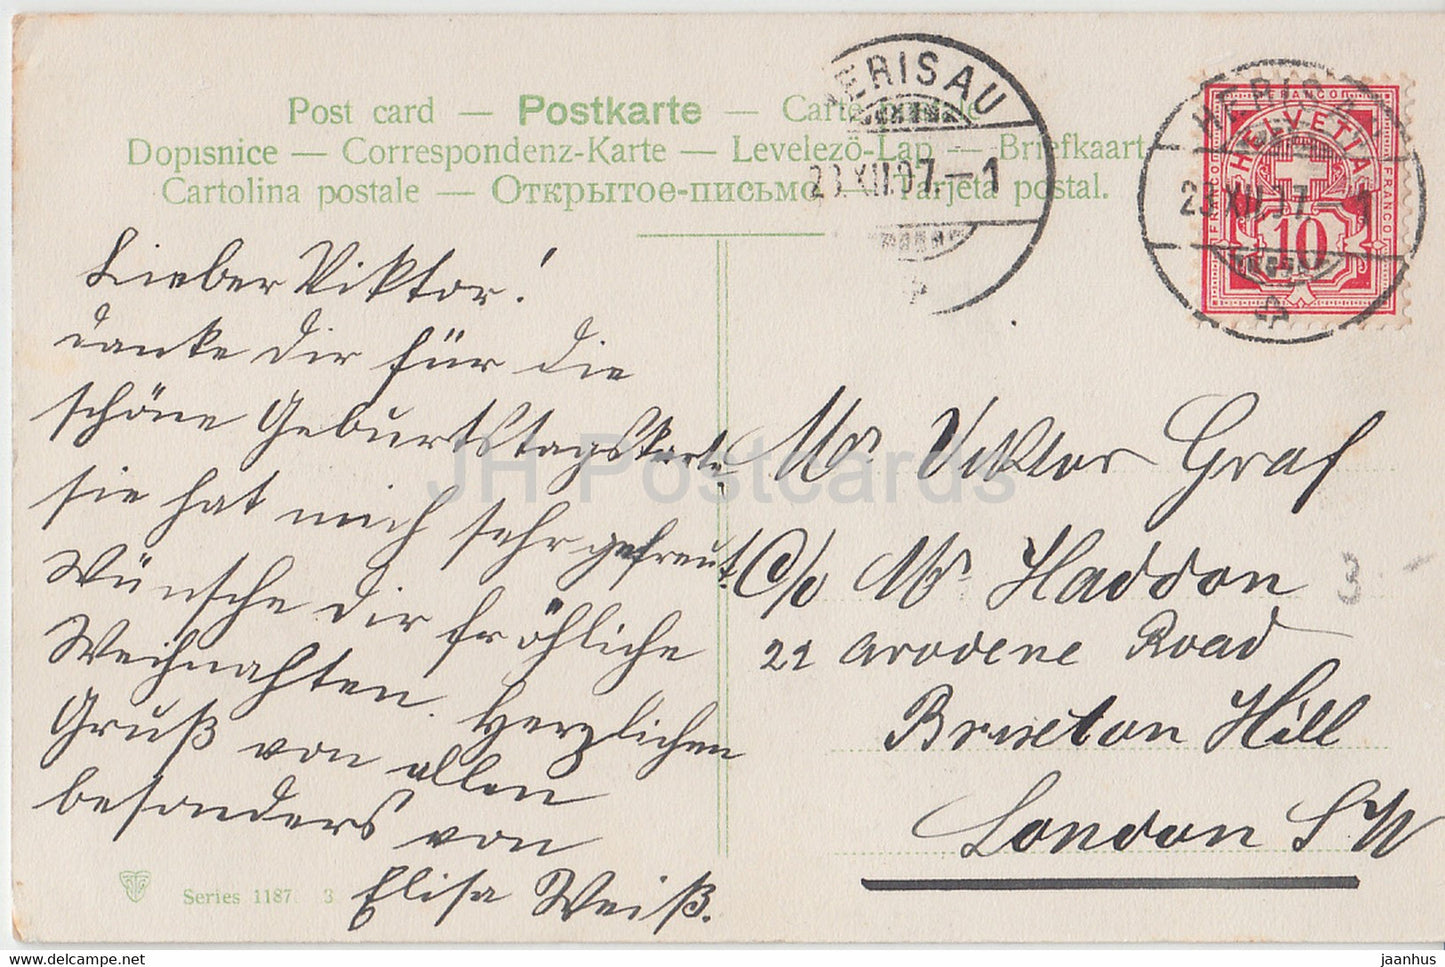 Post card — Postkarte — Carte postale
Dopisnice — Correspondenz-Karte — Levelező-Lap — Briefkaart
Cartolina postale — Открытое-письмо — Tarjeta postal.
HERISAU
23.XII.07–1
HERISAU
23.XII.07–1
FRANCO
HELVETIA
FRANCO
FRANCO
10
Lieber Viktor!
danke dir für die
schöne Geburtstagskarte
sie hat mich sehr gefreut.
Wünsche dir fröhliche
Weihnahten. Herzlichen
Gruß von allen
besonders von
Elisa Weiß.
Mr Viktor Graf
C/o Mr Haddon
22 Arodene Road
Brixton Hill
London SW
3.-
Series 1187. 3
JH Postcards
www.delcampe.net
jaanhus